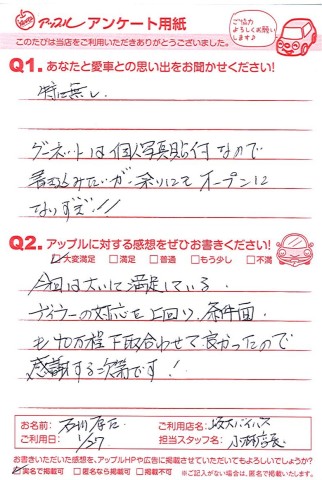 アップル アンケート用紙
このたびは当店をご利用いただきありがとうございました。
ご協力
よろしくお願い
します♪
Q1. あなたと愛車との思い出をお聞かせください!
特に無し.
グーネットは個人写真貼付なので
書き込みたいが余りにもオープンに
なりすぎ!!
Q2. アップルに対する感想をぜひお書きください!
大変満足 □満足 □普通 □もう少し □不満
今回は大いに満足している.
ディラーの対応を上回り、条件面
も 10万程下取合わせて良かったので
感謝する次第です!
お名前:
ご利用店名: 岐大バイパス
ご利用日: 1/27
担当スタッフ名: 小林店長
お書きいただいた感想を、アップルHPや広告に掲載させていただいてもよろしいでしょうか?
実名で掲載可 □匿名なら掲載可 □掲載不可 ※ご記入がない場合は、匿名で掲載させていただきます。